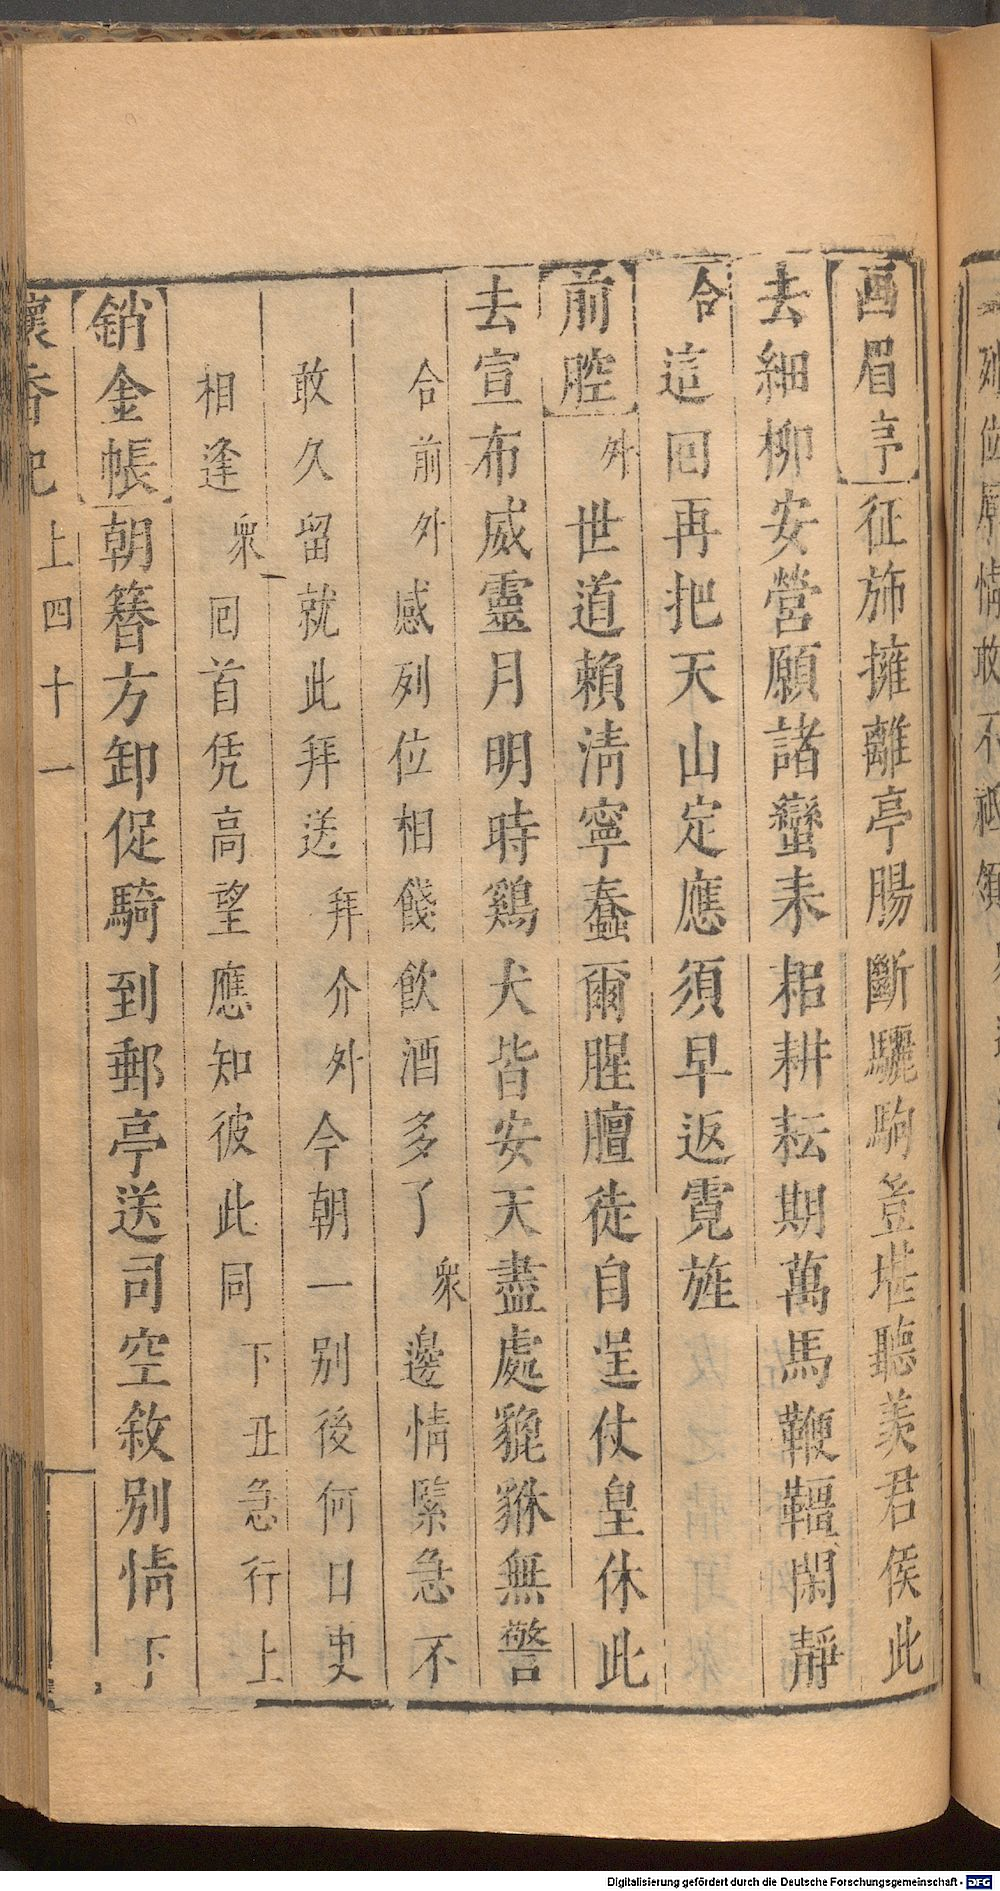 【画眉序】征斾擁離亭腸斷驪駒豈堪聽羡君侯此
去細柳安營願諸蠻耒耜耕耘期萬馬鞭韁閑靜
合這回再把天山定應須早返霓旌
【前腔】外世道賴淸寧蠢爾腥膻徒自逞仗皇休此
去宣布威靈月明時鷄犬皆安天盡處貔貅無警
合前外感列位相餞飲酒多了衆邊情緊急不
敢久留就此拜送拜介外今朝一别後何日更
相逢衆回首凭高望應知彼此同下丑急行上
【銷金帳】朝簪方卸促騎到郵亭送司空敘别情下
懷香記 上四十一
Digitalisierung gefördert durch die Deutsche Forschungsgemeinschaft - DFG